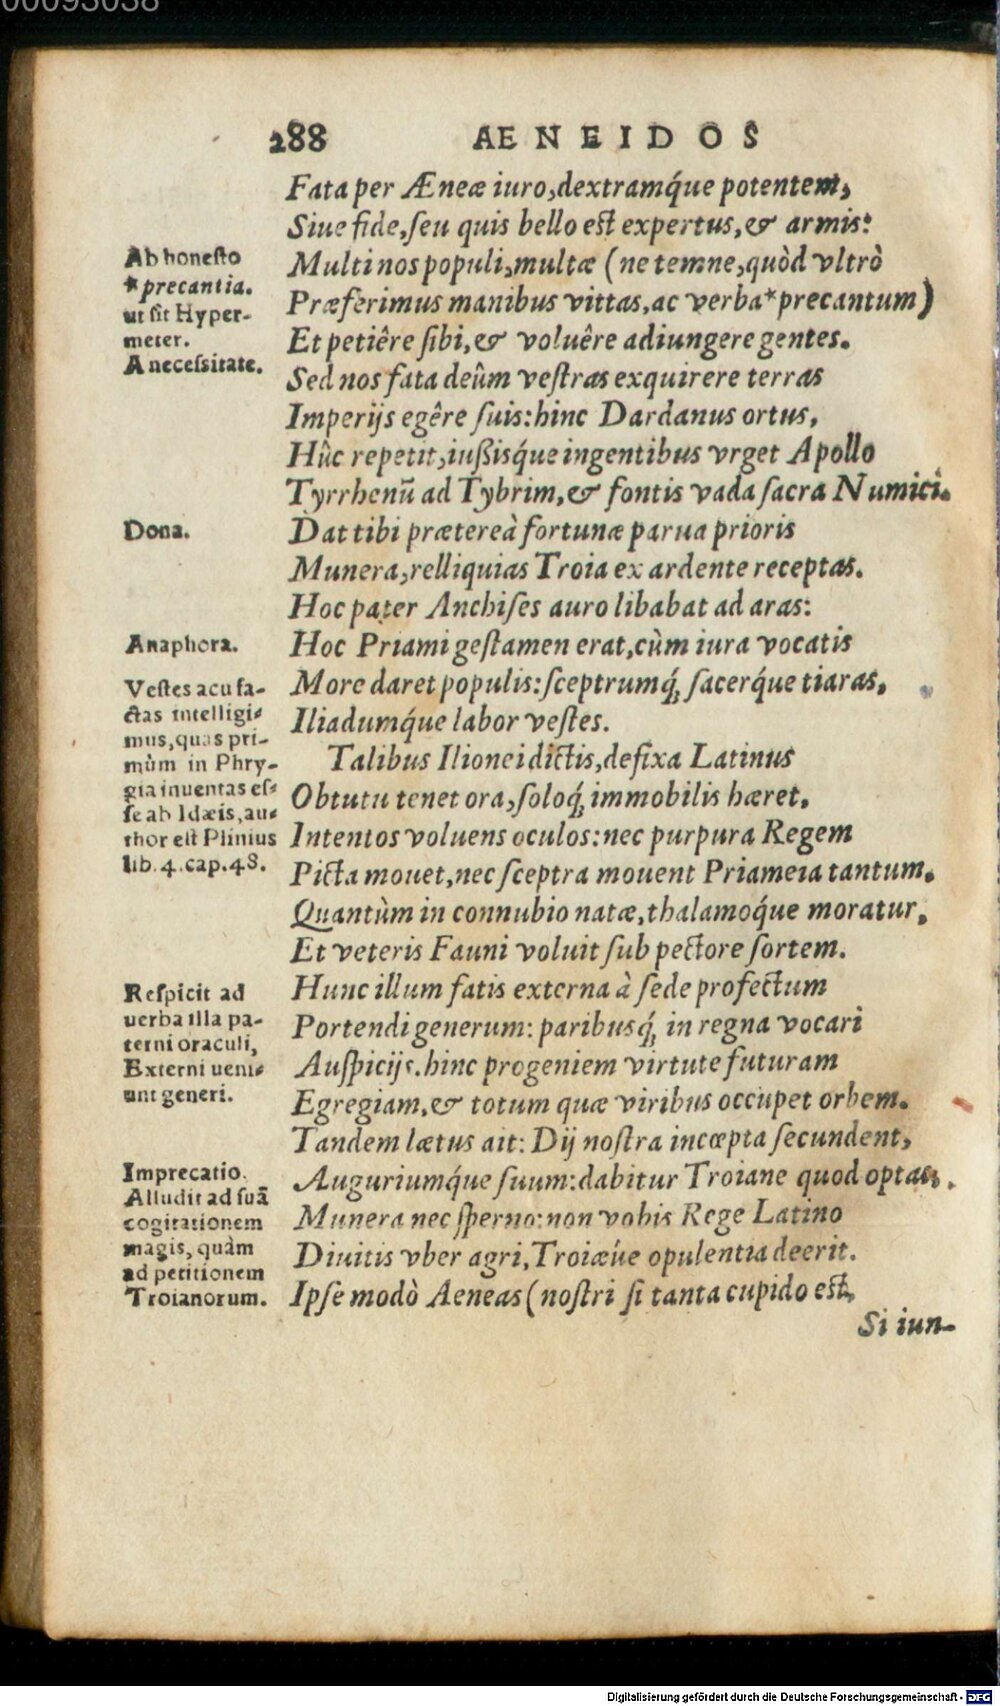 00093038
288 AENEIDOS
Fata per Æneæ iuro, dextramq́ue potentem,
Siue fide, ſeu quis bello est expertus, & armis:
Multi nos populi, multæ (ne temne, quòd vltrò
Præferimus manibus vittas, ac verba*precantum)
Et petiêre ſibi, & voluêre adiungere gentes.
Sed nos fata deûm veſtras exquirere terras
Imperijs egêre ſuis: hinc Dardanus ortus,
Hûc repetit, iußisq́ue ingentibus vrget Apollo
Tyrrhenū ad Tybrim, & fontis vada ſacra Numici.
Dat tibi prætereà fortunæ parua prioris
Munera, relliquias Troia ex ardente receptas.
Hoc pater Anchiſes auro libabat ad aras:
Hoc Priami geſtamen erat, cùm iura vocatis
More daret populis: ſceptrumq́, ſacerq́ue tiaras,
Iliadumq́ue labor veſtes.
Talibus Ilionei dictis, defixa Latinus
Obtutu tenet ora, ſoloq́, immobilis hæret,
Intentos voluens oculos: nec purpura Regem
Picta mouet, nec ſceptra mouent Priameia tantum,
Quantùm in connubio natæ, thalamoq́ue moratur,
Et veteris Fauni voluit ſub pectore ſortem.
Hunc illum fatis externa à ſede profectum
Portendi generum: paribusq́, in regna vocari
Auſpicijs. hinc progeniem virtute futuram
Egregiam, & totum quæ viribus occupet orbem.
Tandem lætus ait: Dij noſtra incœpta ſecundent,
Auguriumq́ue ſuum: dabitur Troiane quod optas,
Munera nec ſperno: non vobis Rege Latino
Diuitis vber agri, Troiæúe opulentia deerit.
Ipſe modò Aeneas (noſtri ſi tanta cupido est,
Si iun-
Ab honeſto
*precantia.
ut ſit Hyper-
meter.
A neceſsitate.
Dona.
Anaphora.
Veſtes acu fa-
ctas intelligi-
mus, quas pri-
mùm in Phry-
gia inuentas eſ-
ſe ab Idæis, au-
thor eſt Plinius
lib. 4. cap. 48.
Reſpicit ad
uerba illa pa-
terni oraculi,
Externi ueni-
unt generi.
Imprecatio.
Alludit ad ſuā
cogitationem
magis, quàm
ad petitionem
Troianorum.
Digitalisierung gefördert durch die Deutsche Forschungsgemeinschaft - DFG